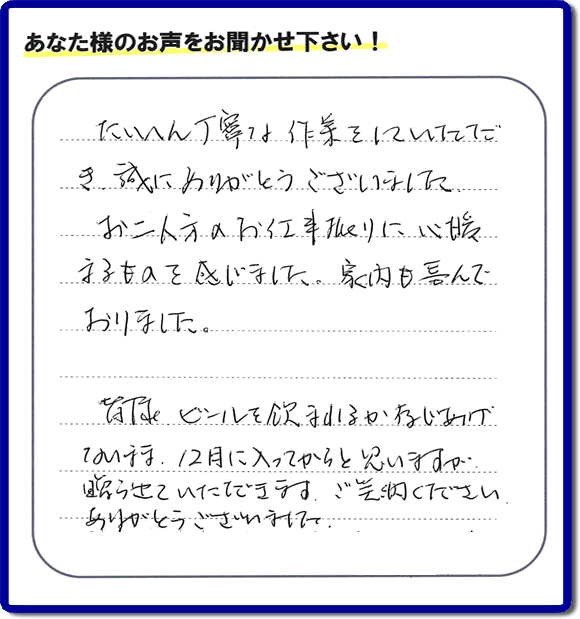 あなた様のお声をお聞かせ下さい！
たいへん丁寧な作業をしていただ
き、誠にありがとうございました。
お二人方のお仕事振りに心暖
まるものを感じました。家内も喜んで
おりました。
皆様ビールを飲まれるか存じあげ
ないまま、12月に入ってからと思いますが、
贈らせていただきます。ご笑納ください。
ありがとうございました。